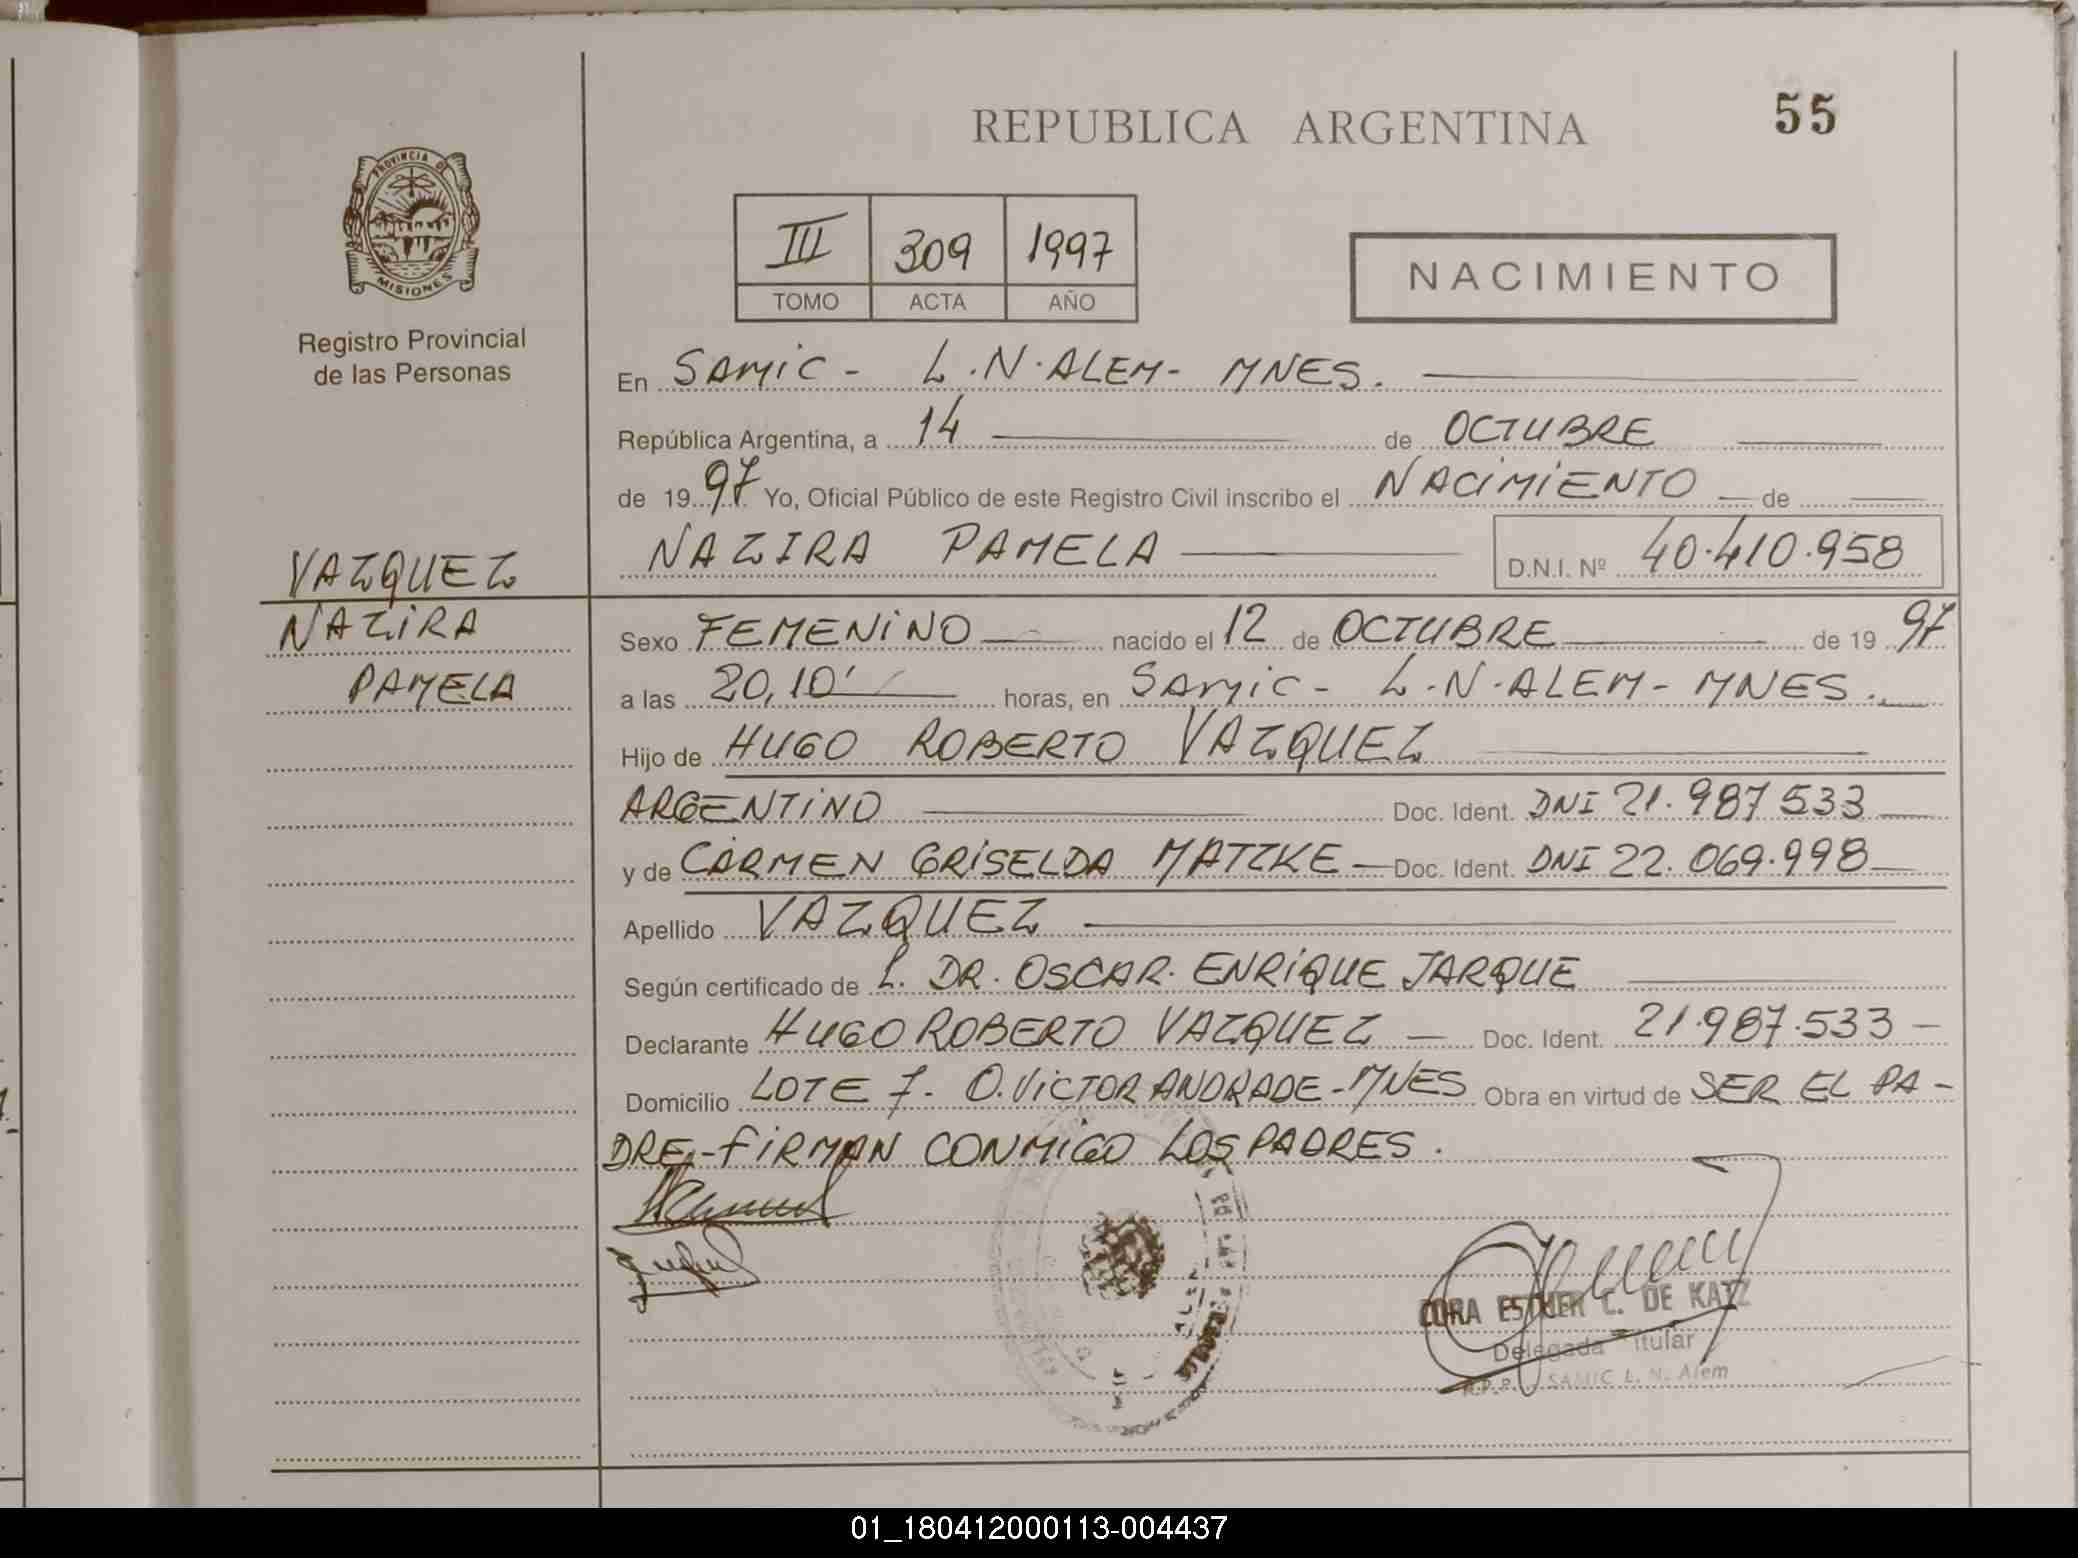 REPUBLICA ARGENTINA
55
PROVINCIA DE
MISIONES
Registro Provincial
de las Personas
III 309 1997
TOMO ACTA AÑO
NACIMIENTO
En SAMIC - L.N.ALEM- MNES.
República Argentina, a 14 de OCTUBRE
de 1997 Yo, Oficial Público de este Registro Civil inscribo el NACIMIENTO de
NAZIRA PAMELA D.N.I. Nº 40.410.958
VAZQUEZ
NAZIRA
PAMELA
Sexo FEMENINO nacido el 12 de OCTUBRE de 1997
a las 20,10' horas, en SAMIC - L.N.ALEM - MNES.
Hijo de HUGO ROBERTO VAZQUEZ
ARGENTINO Doc. Ident. DNI 21.987.533
y de CARMEN GRISELDA MATZKE Doc. Ident. DNI 22.069.998
Apellido VAZQUEZ
Según certificado de L. DR. OSCAR ENRIQUE JARQUE
Declarante HUGO ROBERTO VAZQUEZ Doc. Ident. 21.987.533
Domicilio LOTE 7. O.VICTOR ANDRADE-MNES Obra en virtud de SER EL PA-
DRE.-FIRMAN CONMIGO LOS PADRES.
CORA ESTHER C. DE KATZ
Delegada Titular
R.P.P. SAMIC L. N. Alem
01_180412000113-004437